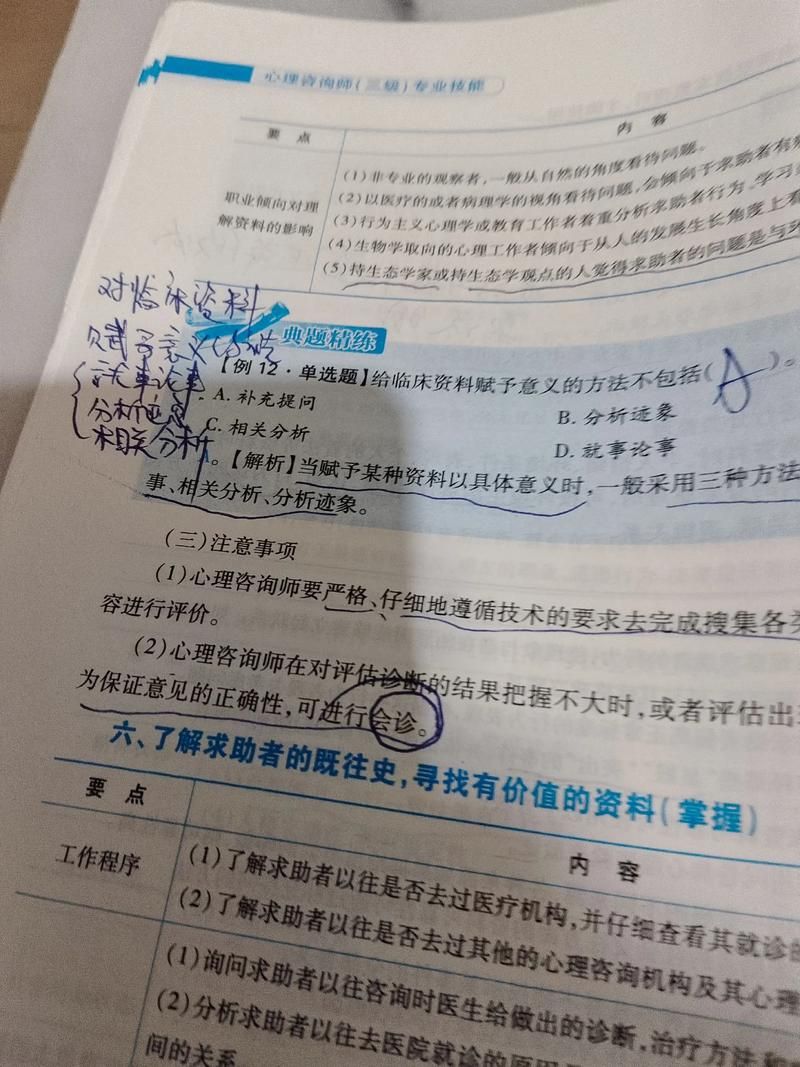 心理咨询师(三级)专业技能
要 点
内 容
职业倾向对理
解资料的影响
(1)非专业的观察者,一般从自然的角度看待问题。
(2)以医疗的或者病理学的视角看待问题,会倾向于求助者有
(3)行为主义心理学或教育工作者着重分析求助者行为、学习
(4)生物学取向的心理工作者倾向于从人的发展生长角度上看
(5)持生态学家或持生态学观点的人觉得求助者的问题是与
对临床资料
赋予意义
就事论事
分析迹象
相关分析
典题精练
【例 12·单选题】给临床资料赋予意义的方法不包括( A )。
A. 补充提问
B. 分析迹象
C. 相关分析
D. 就事论事
【解析】当赋予某种资料以具体意义时,一般采用三种方法
事、相关分析、分析迹象。
(三)注意事项
(1)心理咨询师要严格、仔细地遵循技术的要求去完成搜集各
容进行评价。
(2)心理咨询师在对评估诊断的结果把握不大时,或者评估出
为保证意见的正确性,可进行会诊。
六、了解求助者的既往史,寻找有价值的资料(掌握)
要 点
内 容
工作程序
(1)了解求助者以往是否去过医疗机构,并仔细查看其就诊的
(2)了解求助者以往是否去过其他的心理咨询机构及其心理
(1)询问求助者以往咨询时医生给做出的诊断,治疗方法和
(2)分析求助者以往去医院就诊的原因
间的关系